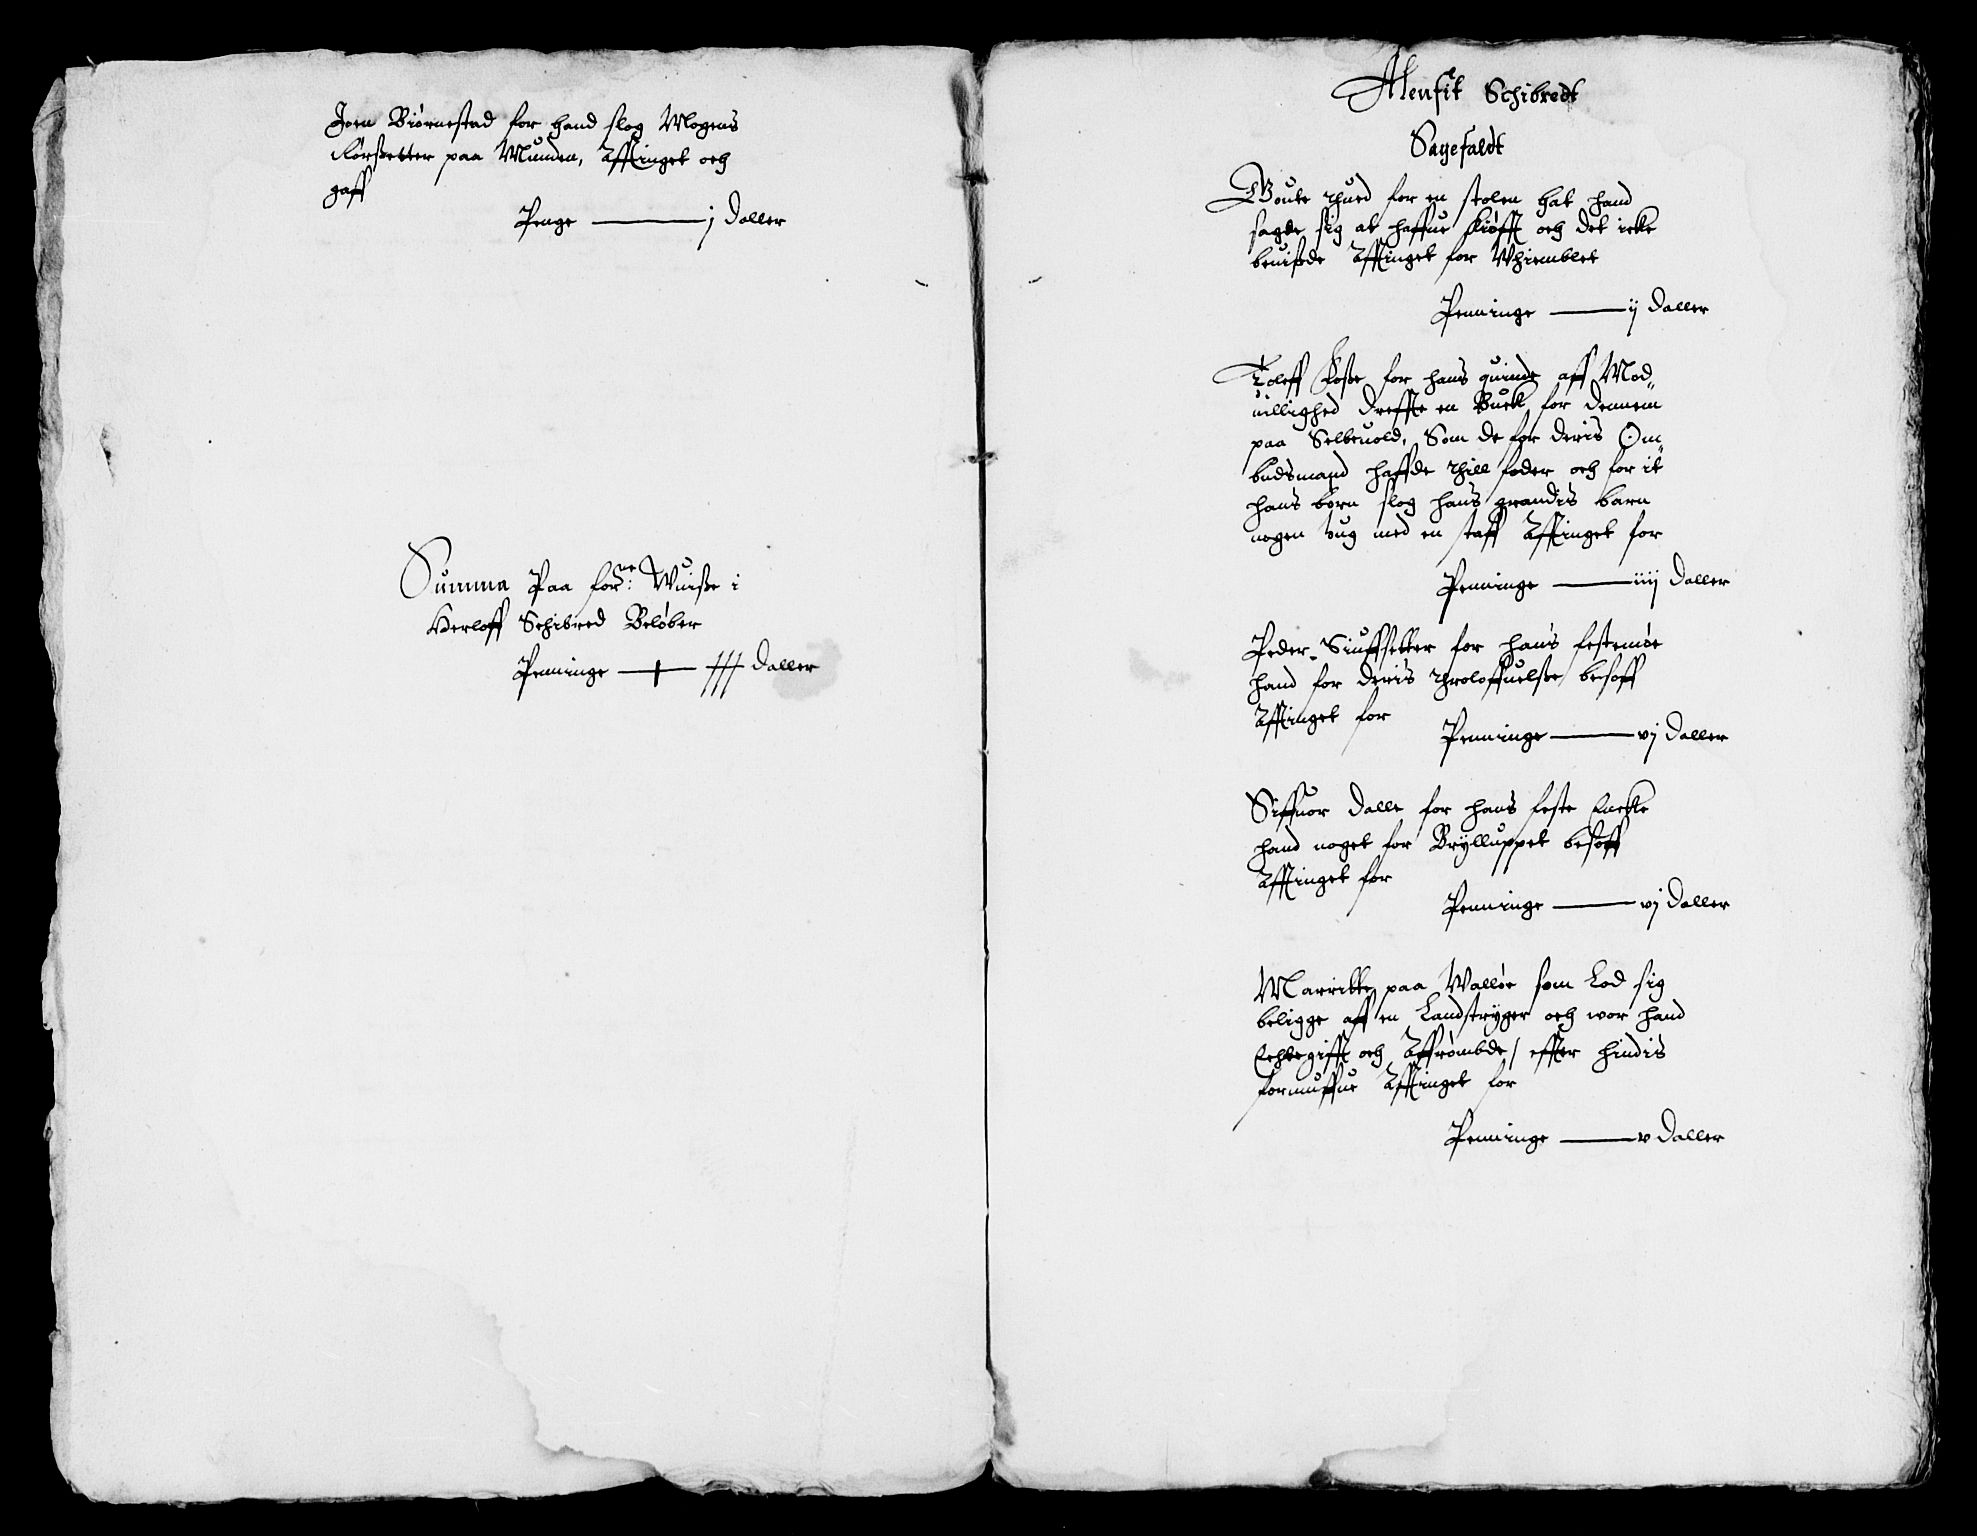 Joen Biørnestad for hand slog Mogens
Kørsetter paa Munden, Affinget och
gaff
Penge ——— j Daller
Summa Paa forne: Wuiße i
Herloff Schibred Beløber
Penninge ——— Daller
Alenfit Schibredt
Sagefaldt
Goute Thued for en stolen hat hand
sagde sig at haffue kiøfft och det icke
beuiste Affinget for Whiemblet
Penninge ——— ij Daller
Toleff Foße for hans quinde aff Mod„
uillighed dreffte en Buck for dennem
paa Selbeuold, Som de for deris Om„
budsmand haffde thill foder och for it
hans børn slog hans grandis barn
nogen hug med en staff Affinget for
Penninge ——— iiij Daller
Peder Siuffsetter for hans festemøe
hand for deris Throloffuelße besoff
Affinget for
Penninge ——— vj Daller
Siffuor Dalle for hans feste Encke
hand noget for Brylluppet besoff
Affinget for
Penninge ——— vj Daller
Marritte paa Walløe som Lod sig
beligge aff en Landstryger och wor hand
Echtegifft och Affrømbde / effter hindis
formuffue Affinget for
Penninge ——— v Daller